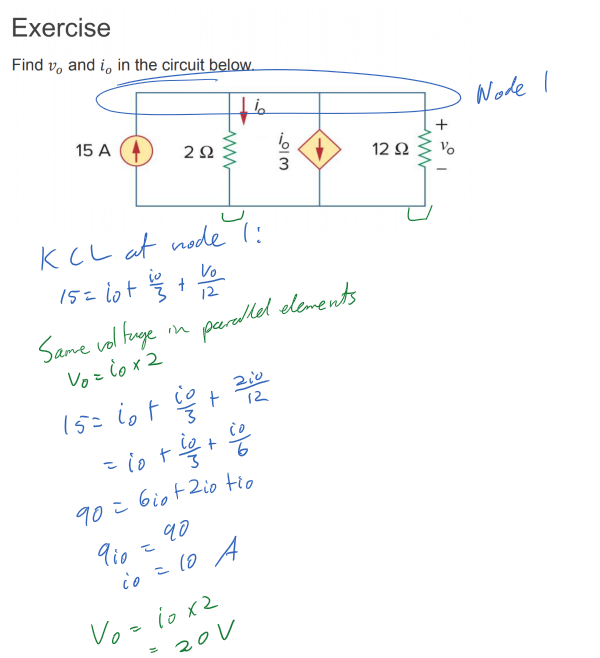 Exercise
Find vₒ and iₒ in the circuit below.
Node 1
iₒ
15 A
2 Ω
iₒ/3
12 Ω
+
vₒ
−
KCL at node 1:
15 = io + io/3 + Vo/12
Same voltage in parallel elements
Vo = io x 2
15 = io + io/3 + 2io/12
= io + io/3 + io/6
90 = 6io + 2io + io
9io = 90
io = 10 A
Vo = io x 2
= 20 V